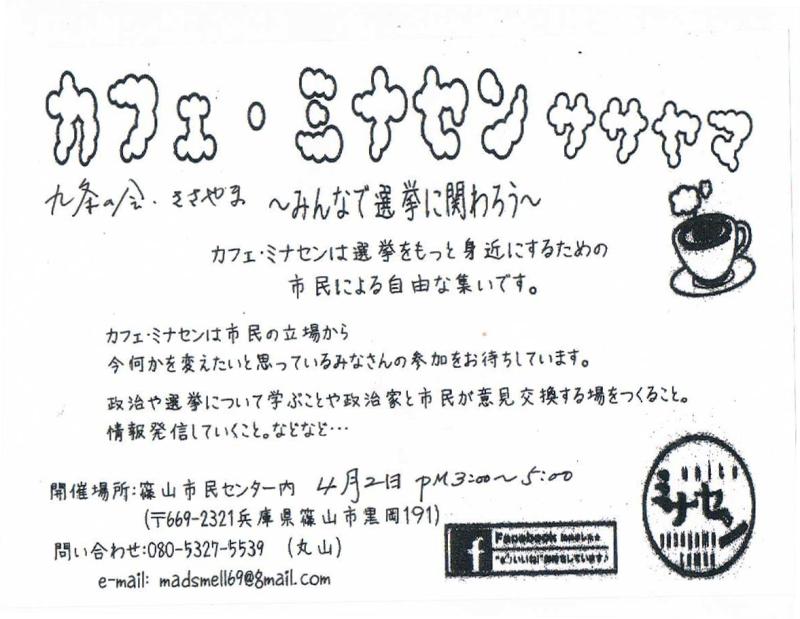 カフェ・ミナセン ササヤマ
九条の会・ささやま ～みんなで選挙に関わろう～
カフェ・ミナセンは選挙をもっと身近にするための
市民による自由な集いです。
カフェ・ミナセンは市民の立場から
今何かを変えたいと思っているみなさんの参加をお待ちしています。
政治や選挙について学ぶことや政治家と市民が意見交換する場をつくること。
情報発信していくこと。などなど…
開催場所:篠山市民センター内 4月2日 PM3:00～5:00
(〒669-2321兵庫県篠山市黒岡191)
問い合わせ:080-5327-5539 (丸山)
e-mail: madsmell69@gmail.com
f Facebook
ミナセン